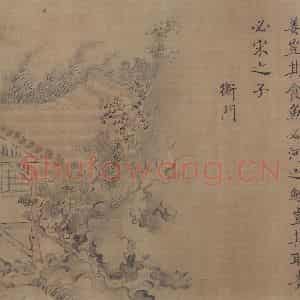 姜豈其食魚必河之鯉豈其取
必宋之子
衡門
Shufawang.CN